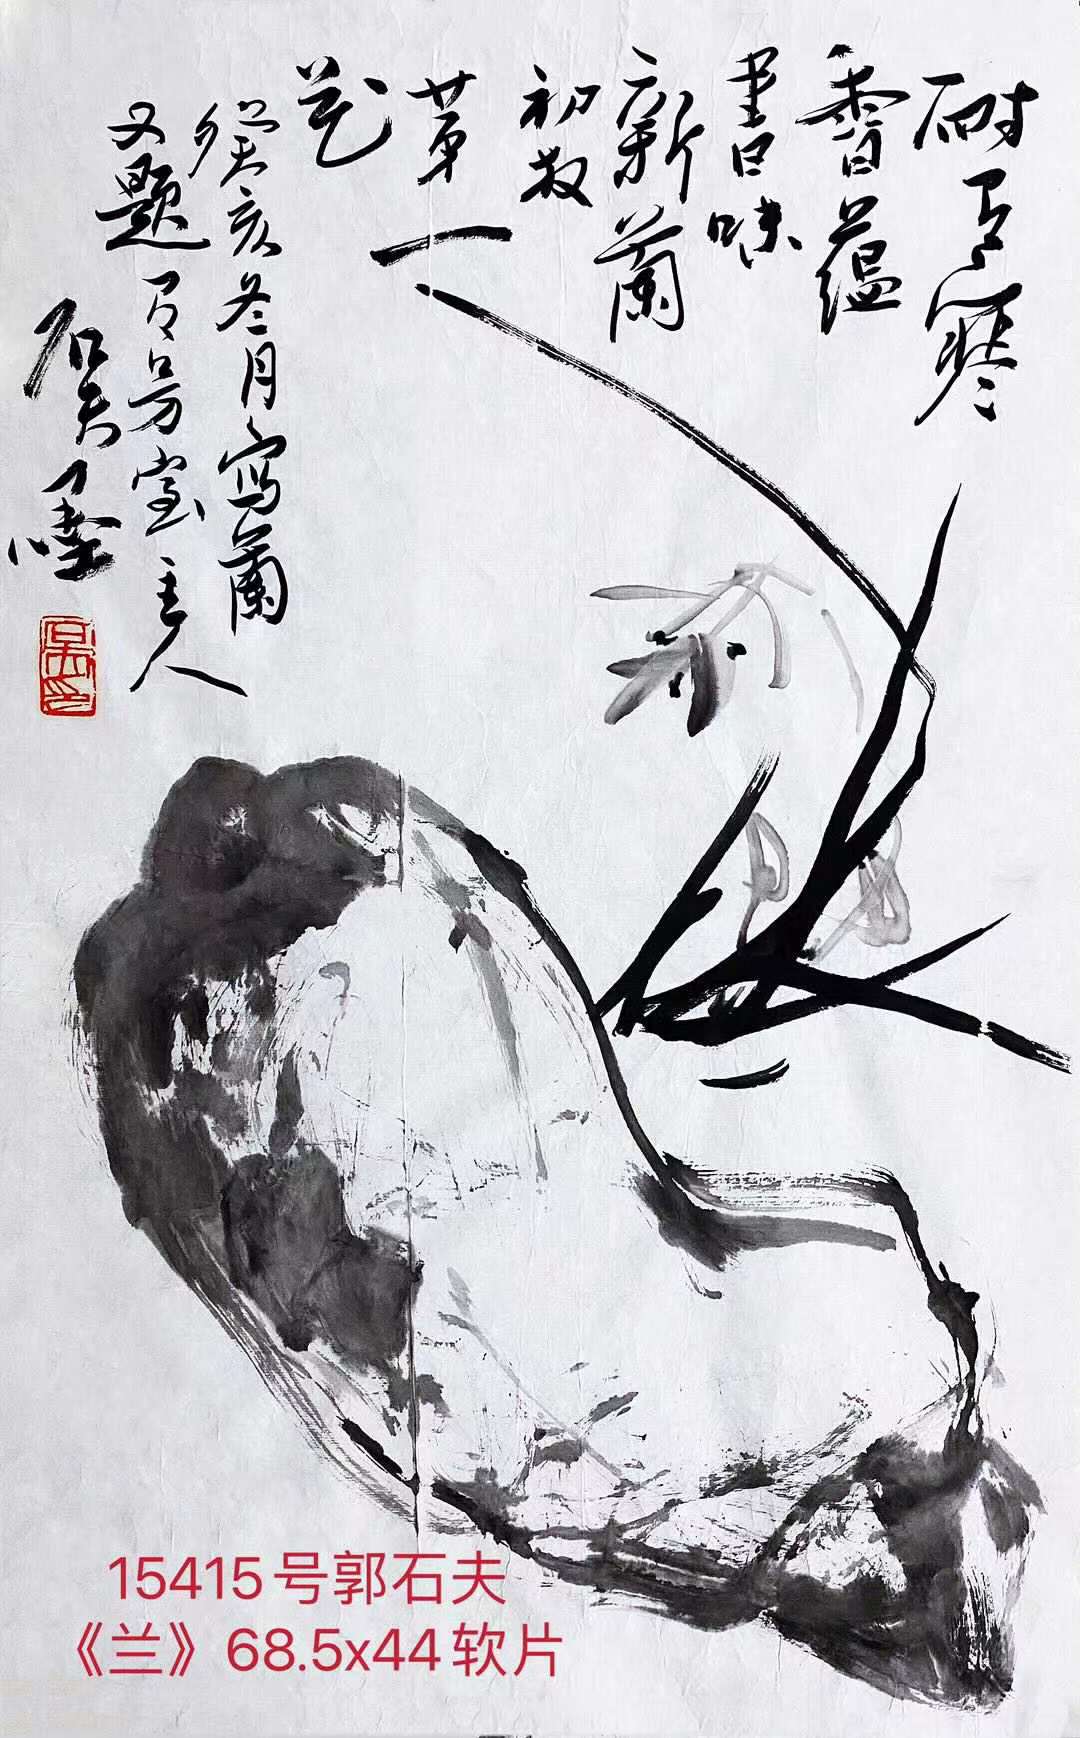 耐寒
香蘊
書味
新蘭
初放
第一
花
癸亥冬月寫蘭
又題 室主人
石夫
15415号郭石夫
《兰》68.5x44软片